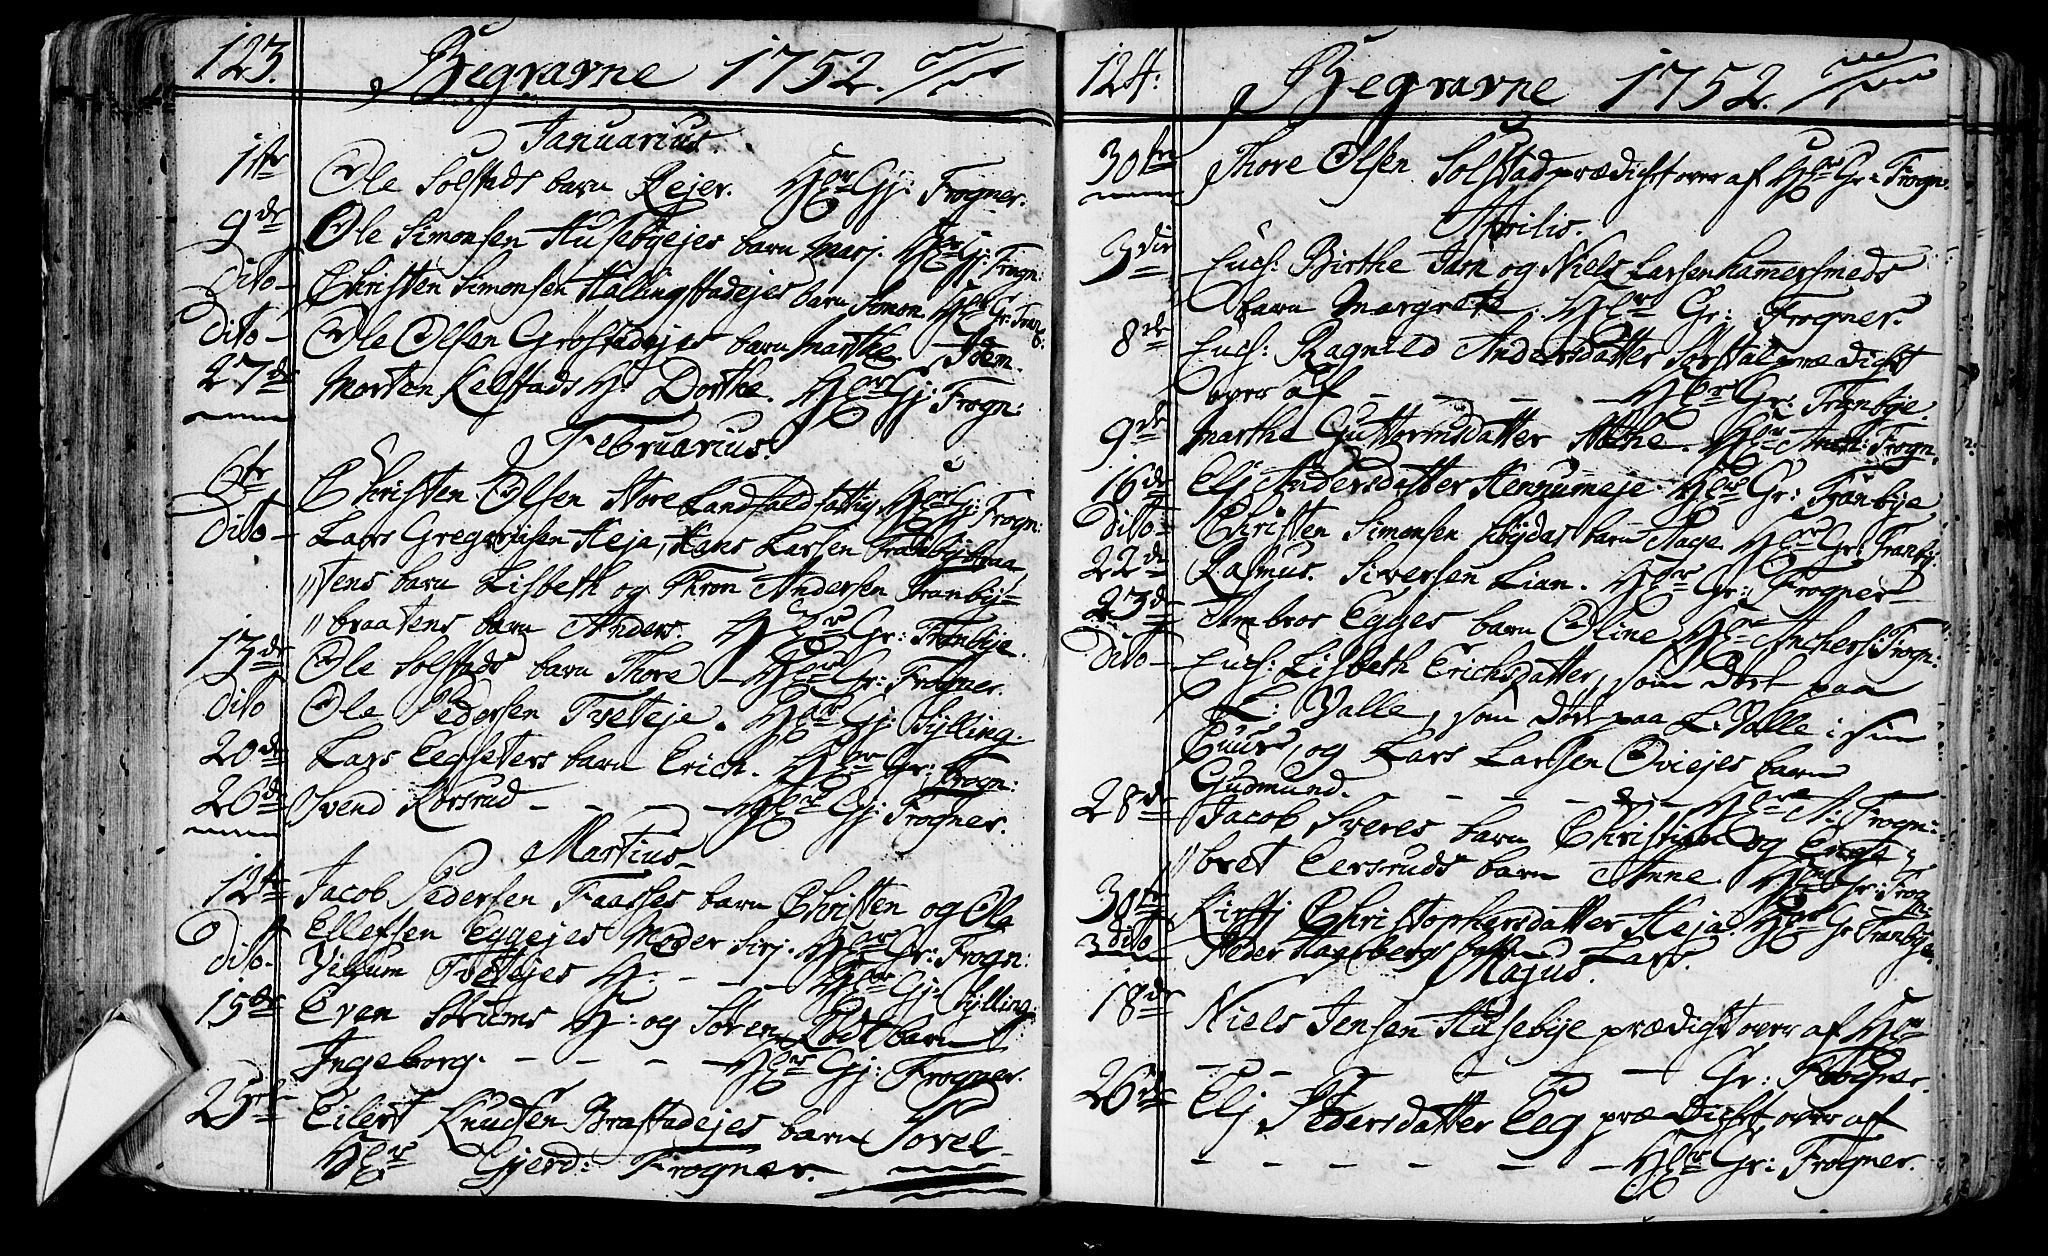 123. Begravne 1752.
Januarius.
1ste Ole Solstads barn Rejer. Hr Gj: Frogner.
9de Ole Simonsen Husebyejes barn Marj. Hr Gj: Frogn:
Dito – Christen Simonsen Hallingstadejes barn Simon Hr Gr: Franb:
Dito – Ole Olsen Grostadejes barn Marthe – Idem.
27de Morten Kelstads H: Dorthe. Hr Gj: Frogn:
Februarius.
6te Christen Olsen Store Landfald fattig. Hr Gj: Frogn:
Dito – Lars Gregariisen Heja, Hans Larsen Tranbybraa
"tens barn Lisbeth og Thron Andersen Tranby=
"braatens barn Anders. Hr Gr: Tranbye.
13de Ole Solstads barn Thore – Hr Gr: Frogner.
Dito Ole Pedersen Tveteje. Hr Gj: Sylling.
20de Lars Eegseters barn Erich. Hr Gr: Frogn:
26de Svend Korsrud – – – – Hr Gj: Frogner.
Martius
12te Jacob Pedersen Faasses barn Christen og Ole
Ellefsen Eggejes Moder Sirj. Hr Gr: Frogn:
Dito. Villum Tvetejes H: – – – Hr Gj: Sylling:
15de Even Sørums H: og Søren Rødt barn
Ingeborg. – – – – Hr Gj: Frogner.
25de Eilert Knudsen Brastadejes barn Sovel
Hr Gjerd: Frogner.
124: Begravne 1752.
30te Thore Olsen Solstad prædicket over af Hr Gr: Frogn:
Aprilis.
3die Euch: Birthe Jarn og Niels Larsen hammersmeds
barn Margrete. Hr Gr: Frogner.
8de Euch: Ragnild Andersdatter prædicht
over af – – – – Hr Gr: Tranbye.
9de Marthe Guttormsdatter Nøthe. Hr Anch: Frogn.
16de Elj Andersdatter Hennumeje. Hr Gr: Tranbye
Dito – Christen Simonsen Skiydas barn Aage Hr Gr: Tranby.
22de Rasmus Siversen Lian. Hr Gr: Frogner
23de Ambros Egges barn Oline Hr Anchers: Frogn:
Dito – Euch: Lisbeth Erichsdatter, som døde paa
L: Valle, som døde paa L: Valle i sin
og Lars Larsen Oviejes barn
Gudmund. – – – – – Hr A: Frogn:
28de Jacob Sveres barn Christian og Enge=
"bret Eersruds barn Anne. Hr Gr: Frogn:
30te Kirstj Christophersdatter Heja. Hr Gr Tranbye.
Dito Peder Haglbergs Lars.
Majus.
18de Niels Jensen Husebye prædigt over af Hr
– – – – – Gr: Frogner
26de Elj Pedersdatter Eeg prædicht over af
– – – – – Hr Gr: Frogner.